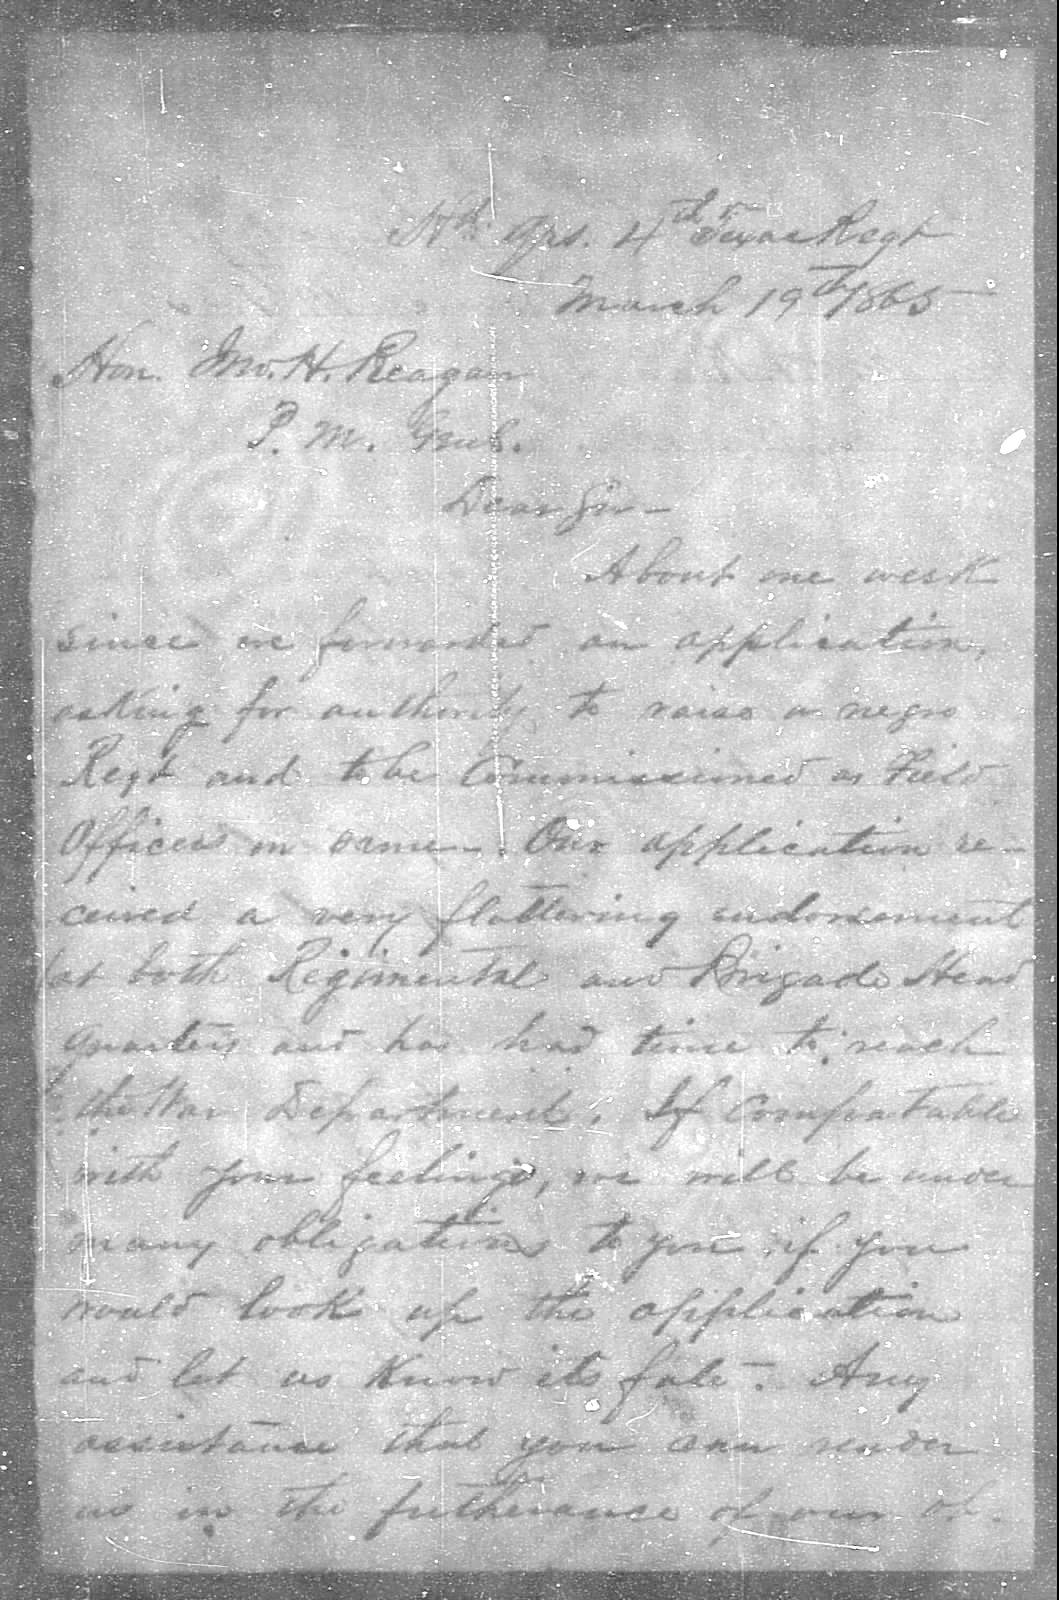 Hd. Qrs. 4th Texas Regt
March 19th 1865
Hon. Jno. H. Reagan
P. M. Genl.
Dear Sir -
About one week
since we forwarded an application,
asking for authority to raise a negro
Regt and to be Commissioned as Field
Officers in same -. Our application re-
ceived a very flattering endorsement
at both Regimental and Brigade Head
quarters and has had time to reach
the War Department. If Compatable
with your feelings, we will be under
many obligations to you if you
would look up the application
and let us know its fate -. Any
assistance that you can render
us in the furtherance of our ob-